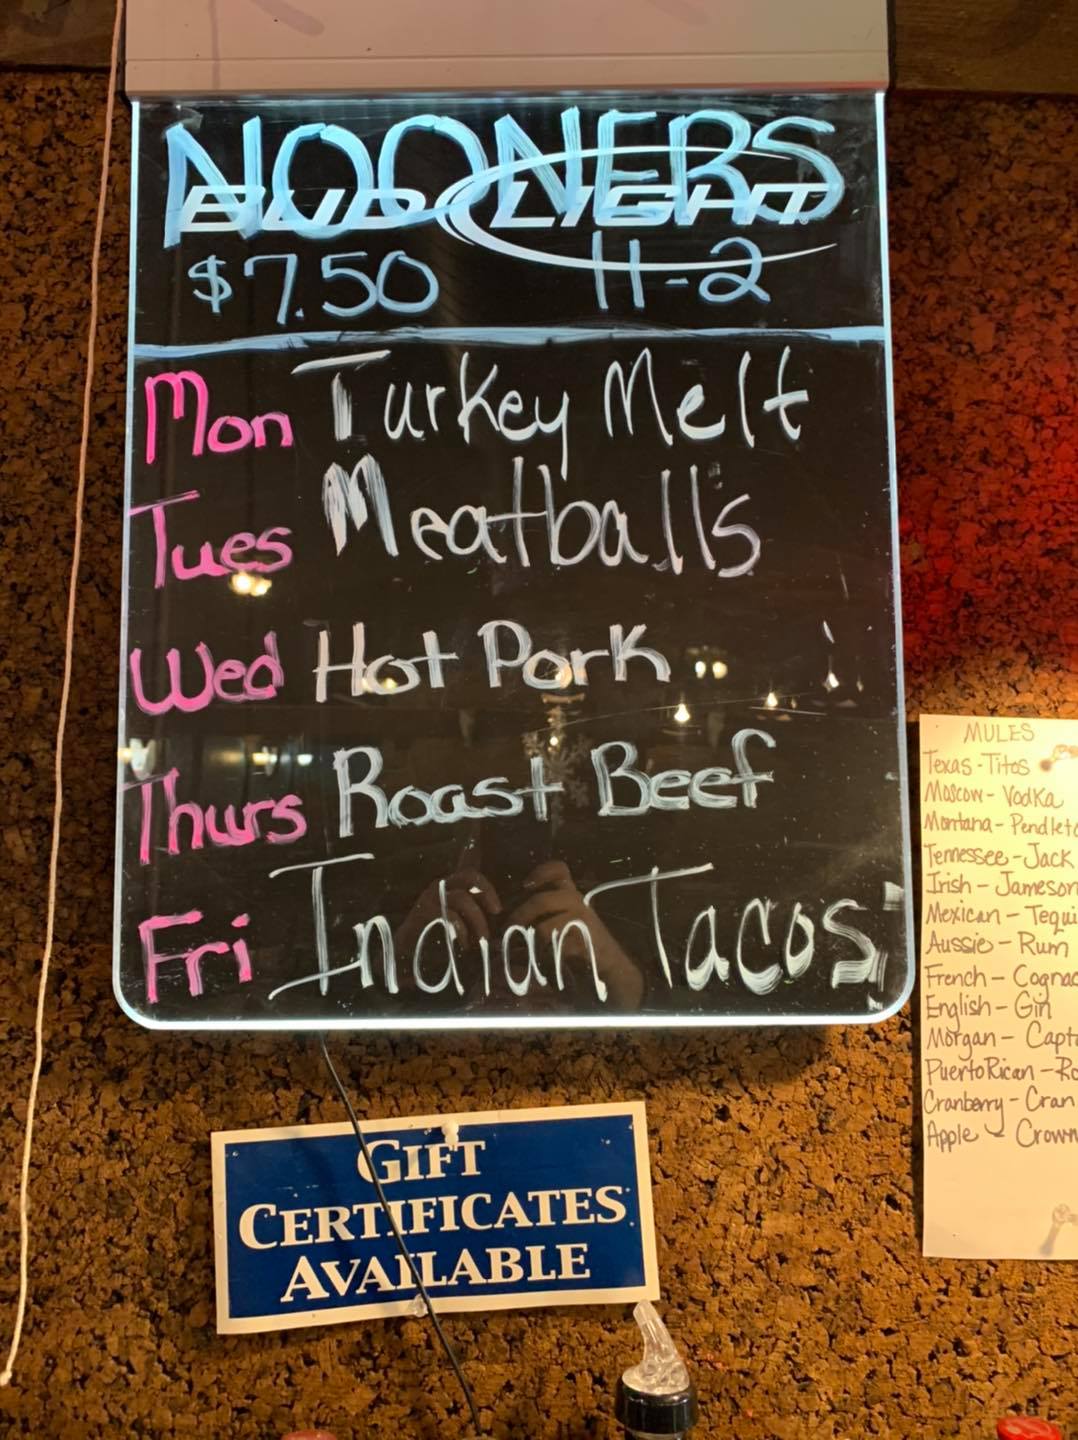 NOONERS
BUD LIGHT
$7.50 11-2
Mon Turkey Melt
Tues Meatballs
Wed Hot Pork
Thurs Roast Beef
Fri Indian Tacos
GIFT
CERTIFICATES
AVAILABLE
MULES
Texas - Titos
Moscow - Vodka
Montana - Pendleto
Tennessee - Jack
Irish - Jameson
Mexican - Tequi
Aussie - Rum
French - Cognac
English - Gin
Morgan - Capt
Puerto Rican - Ro
Cranberry - Cran
Apple - Crown